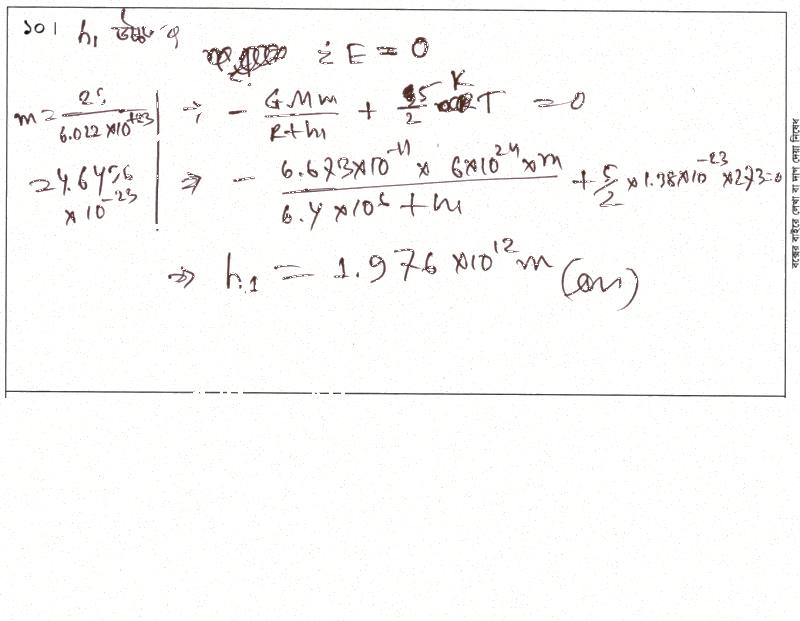 ১০। h₁ উচ্চতায়
ΣE = 0
m = 28 / 6.022×10^+23 ⇒ - GMm / R+h + 5/2 KT = 0
= 4.6496 × 10^-23 ⇒ - 6.673×10^-11 × 6×10^24 × m / 6.4×10^6 + h + 5/2 × 1.38×10^-23 × 273 = 0
⇒ h₁ = 1.976 ×10^12 m (Ans)
বক্সের বাইরে লেখা বা দাগ দেয়া নিষেধ